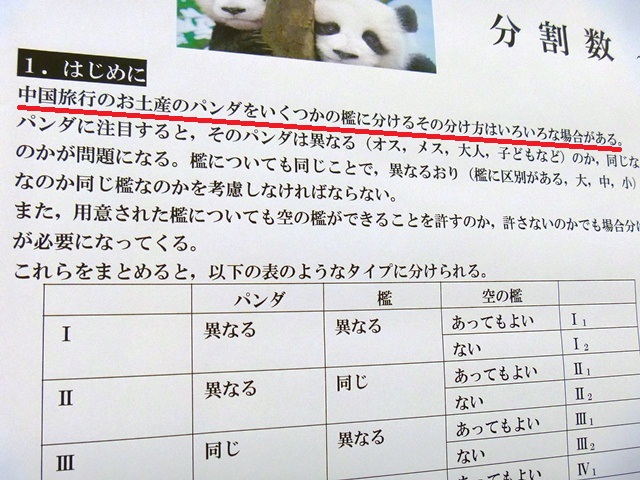 分割数
1．はじめに
中国旅行のお土産のパンダをいくつかの檻に分けるその分け方はいろいろな場合がある。
パンダに注目すると，そのパンダは異なる（オス，メス，大人，子どもなど）のか，同じな
のかが問題になる。檻についても同じことで，異なるおり（檻に区別がある，大，中，小）
なのか同じ檻なのかを考慮しなければならない。
また，用意された檻についても空の檻ができることを許すのか，許さないのかでも場合分け
が必要になってくる。
これらをまとめると，以下の表のようなタイプに分けられる。
パンダ 檻 空の檻
Ⅰ 異なる 異なる あってもよい Ⅰ1
ない Ⅰ2
Ⅱ 異なる 同じ あってもよい Ⅱ1
ない Ⅱ2
Ⅲ 同じ 異なる あってもよい Ⅲ1
ない Ⅲ2
あってもよい Ⅳ1